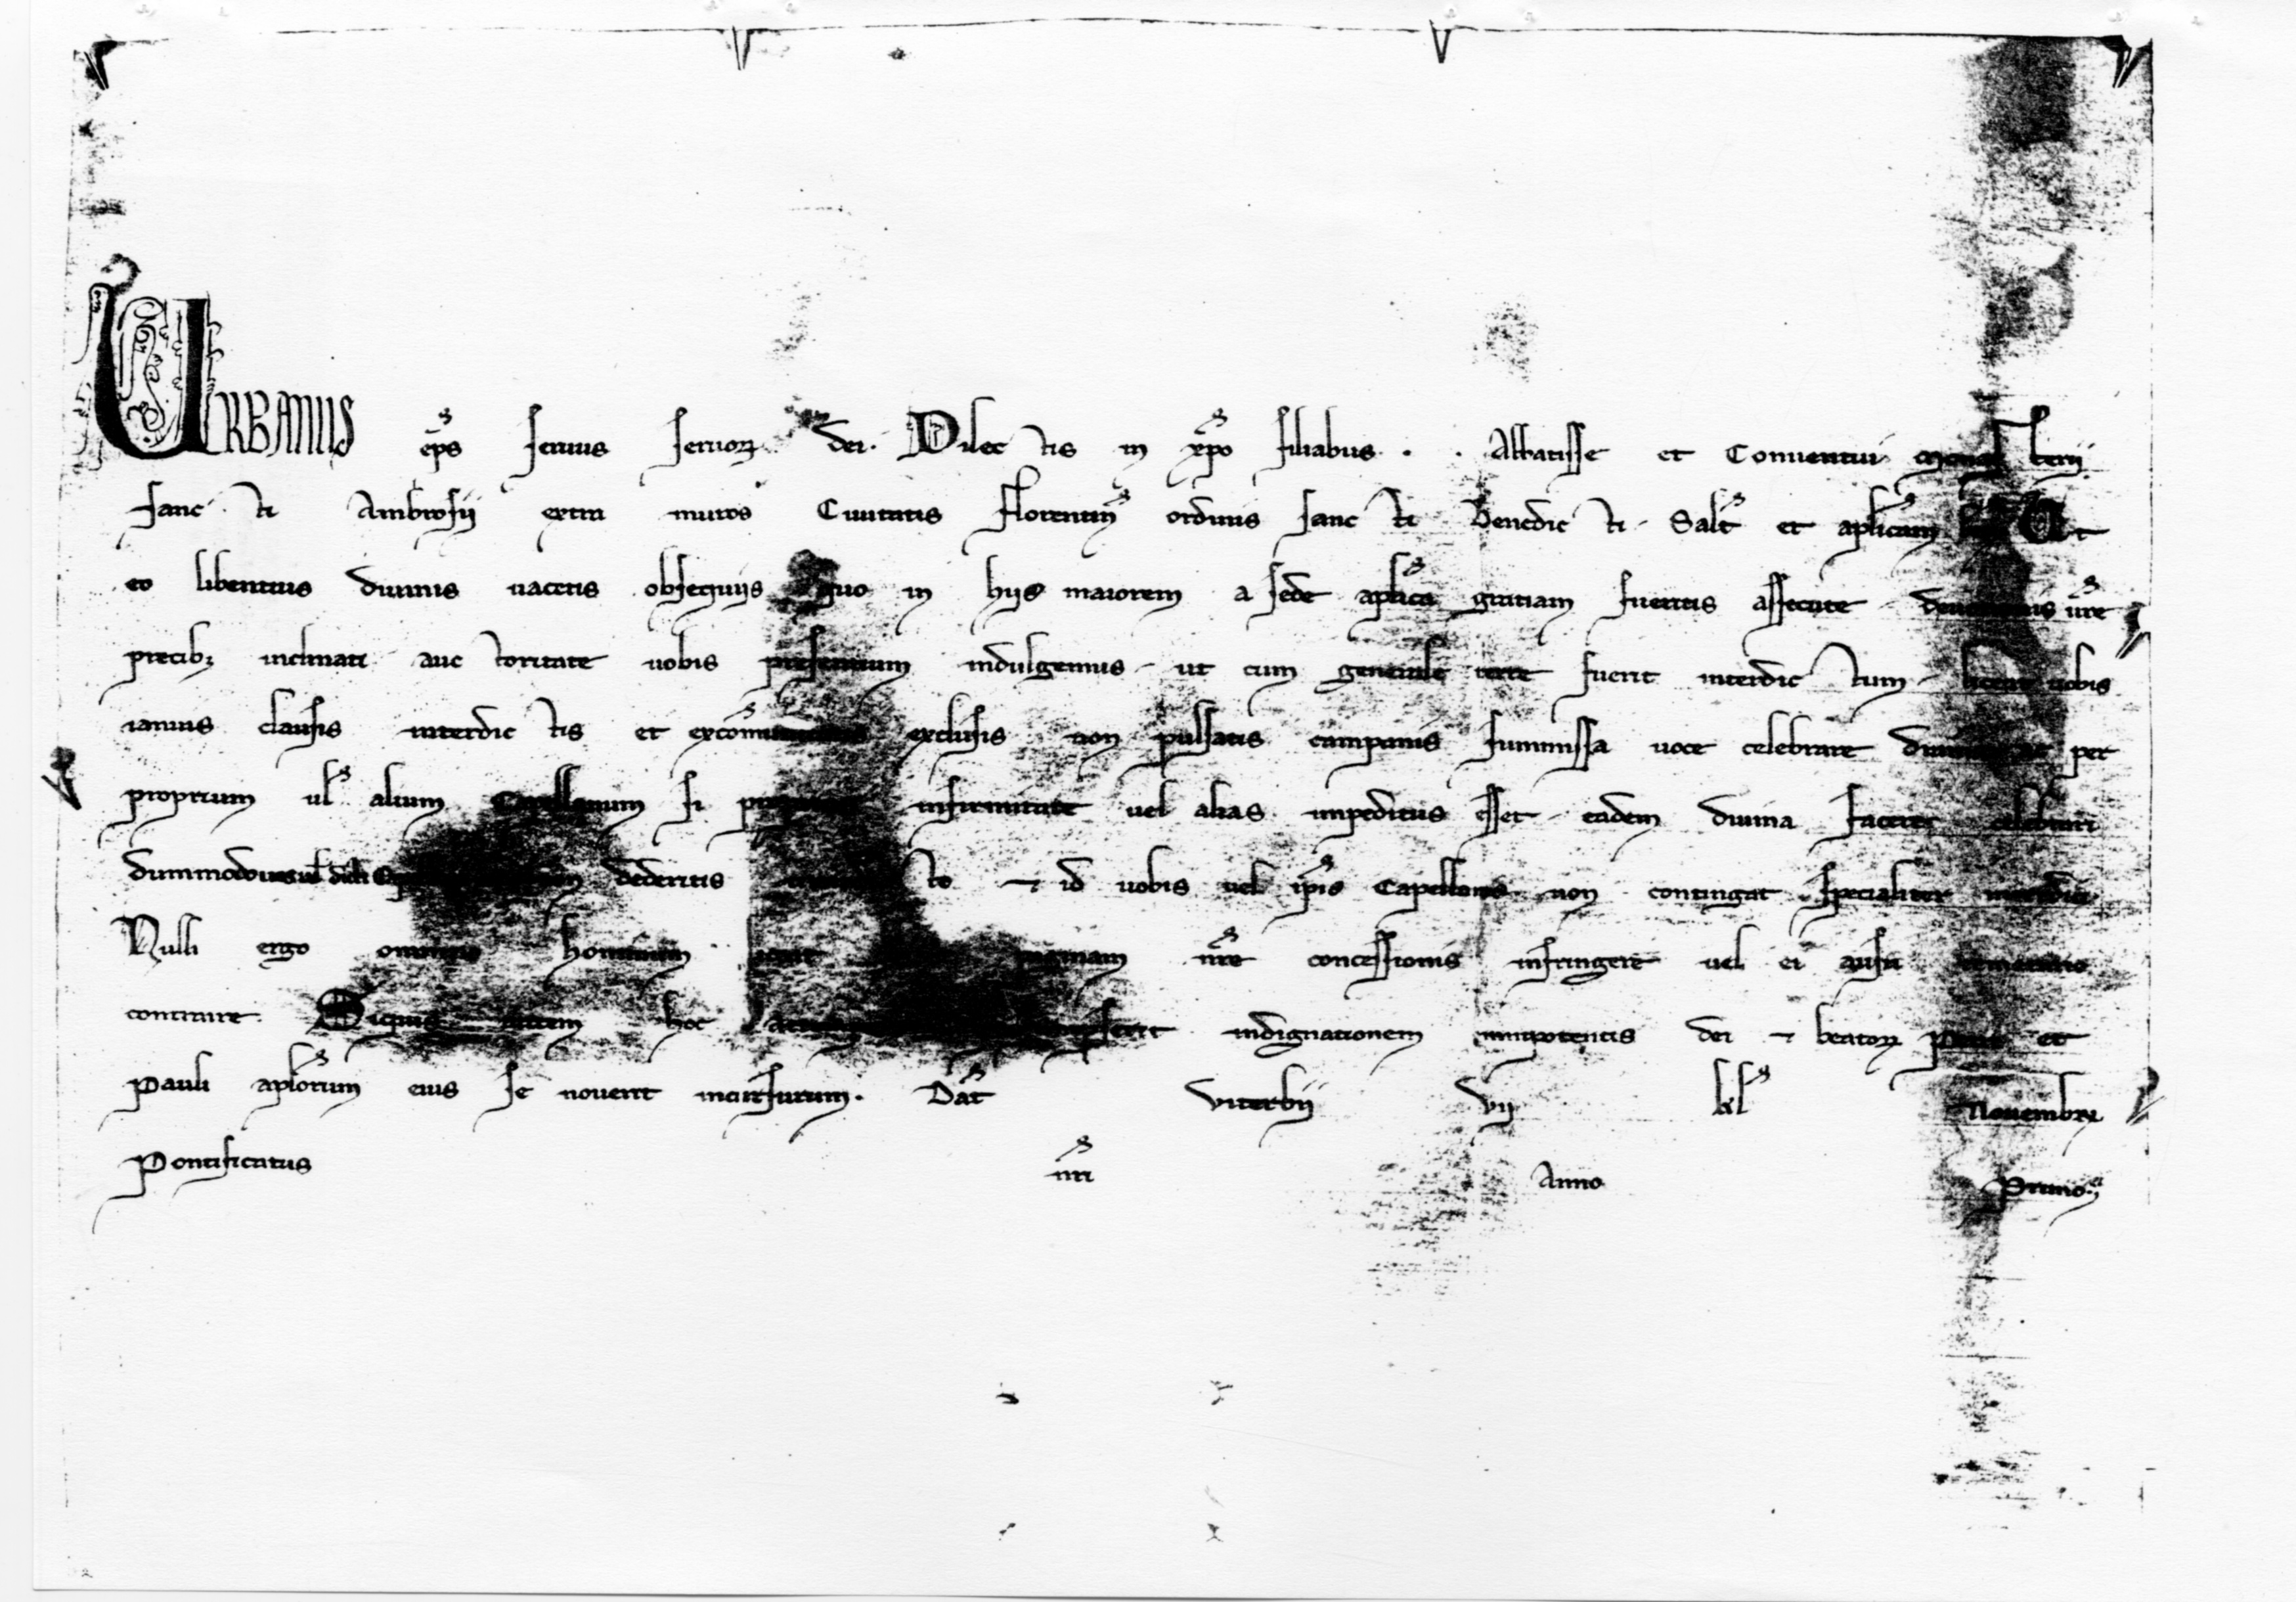 URBANUS ep̄s seruus seruoꝝ dei. Dilectis in xp̄o filiabus . . Abbatisse et Conuentui monasterij
sancti Ambrosij extra muros Ciuitatis Florentin̄ ordinis sancti Benedicti Salt̄ et ap̄licam Ut
eo libentius diuinis uacetis obsequijs quo in hijs maiorem a sede ap̄lica gratiam fueritis assecute deuotionis ur̄e
precibꝫ inclinati auctoritate uobis presentium indulgemus ut cum generale terre fuerit interdictum liceat uobis
ianuis clausis interdictis et excōmunicatis exclusis non pulsatis campanis summissa uoce celebrare diuina ac per
proprium ul̄ alium Capellanum si proprius infirmitate uel alias impeditus esset eadem diuina facere celebrari
dummodo uos uel dicti dederitis ⁊ id uobis uel ip̄is Capellanis non contingat specialiter interdici
Nulli ergo omnino hominum liceat paginam nr̄e concessionis infringere uel ei ausu temerario
contraire. Siquis autem hoc indignationem omnipotentis dei ⁊ beatoꝝ Petri et
Pauli ap̄lorum eius se nouerit incursurum. Dat̄ Viterbij vij kl̄ Nouembrꝭ
Pontificatus nr̄i Anno Primo.